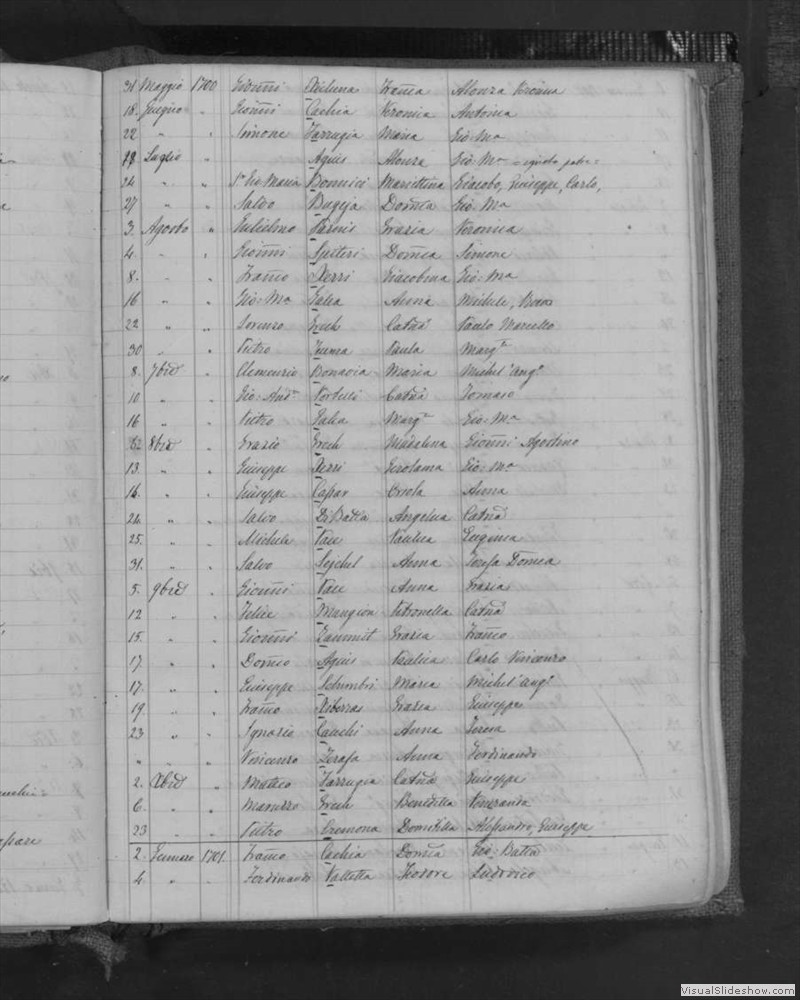 31 Maggio 1700 Gioñni Xicluna Frañca Alonza Veronica
18 Giugno " Gioñni Cachia Veronica Antonia
22 " " Simone Farrugia Maria Gio: Mª
Luglio " Agius Alonza Gio: Mª
24 " " Gio Maria Bonnici Mariettina Giacobo, Giuseppe, Carlo,
27 " " Salvo Bugeja Domca Gio: Mª
3. Agosto " Gulielmo Grazia Veronica
4. " " Gioñni Spiteri Domca Simone
8. " " Frañco Xerri Giacobina Gio: Mª
16 " " Gio: Mª Galea Anna Michele,
22 " " Lorenzo Grech Catña Paulo Marcello
30 " " Pietro Paula Margª
8. 7bre " Clemenzio Bonavia Maria Michel'Angº
10 " " Gio: Andª Portelli Catña Tomaso
16 " " Pietro Galea Margª Gio: Mª
8bre " Grazio Grech Madalena Gioñni Agostino
13. " " Giuseppe Xerri Gerolama Gio: Mª
16. " " Giuseppe Caspar Orsola Anna
24. " " Salvo Di Batta Angelica Catña
25. " " Michele Pace Paulica Eugenia
31. " " Salvo Sejchel Anna Teresa Domca
5. 9bre " Gioñni Pace Anna Grazia
12 " " Felice Mangion Petronella Catña
15. " " Gioñni Zammit Grazia Frañco
17. " " Domco Agius Paulica Carlo Vincenzo
17. " " Giuseppe Schembri Maria Michel'Angº
19. " " Frañco Xiberras Grazia Giuseppe
23 " " Ignazio Cauchi Anna Teresa
" " " Vincenzo Zerafa Anna Ferdinando
2. Xbre " Matteo Farrugia Catña Giuseppe
6. " " Maruzzo Grech Benedetta Veneranda
23 " " Pietro Cremona Domitilla Alessandro, Giuseppe
2. Gennaro 1701. Frañco Cachia Domca Gio: Batta
4. " " Ferdinando Valletta Teodora Ludovico
VisualSlideshow.com